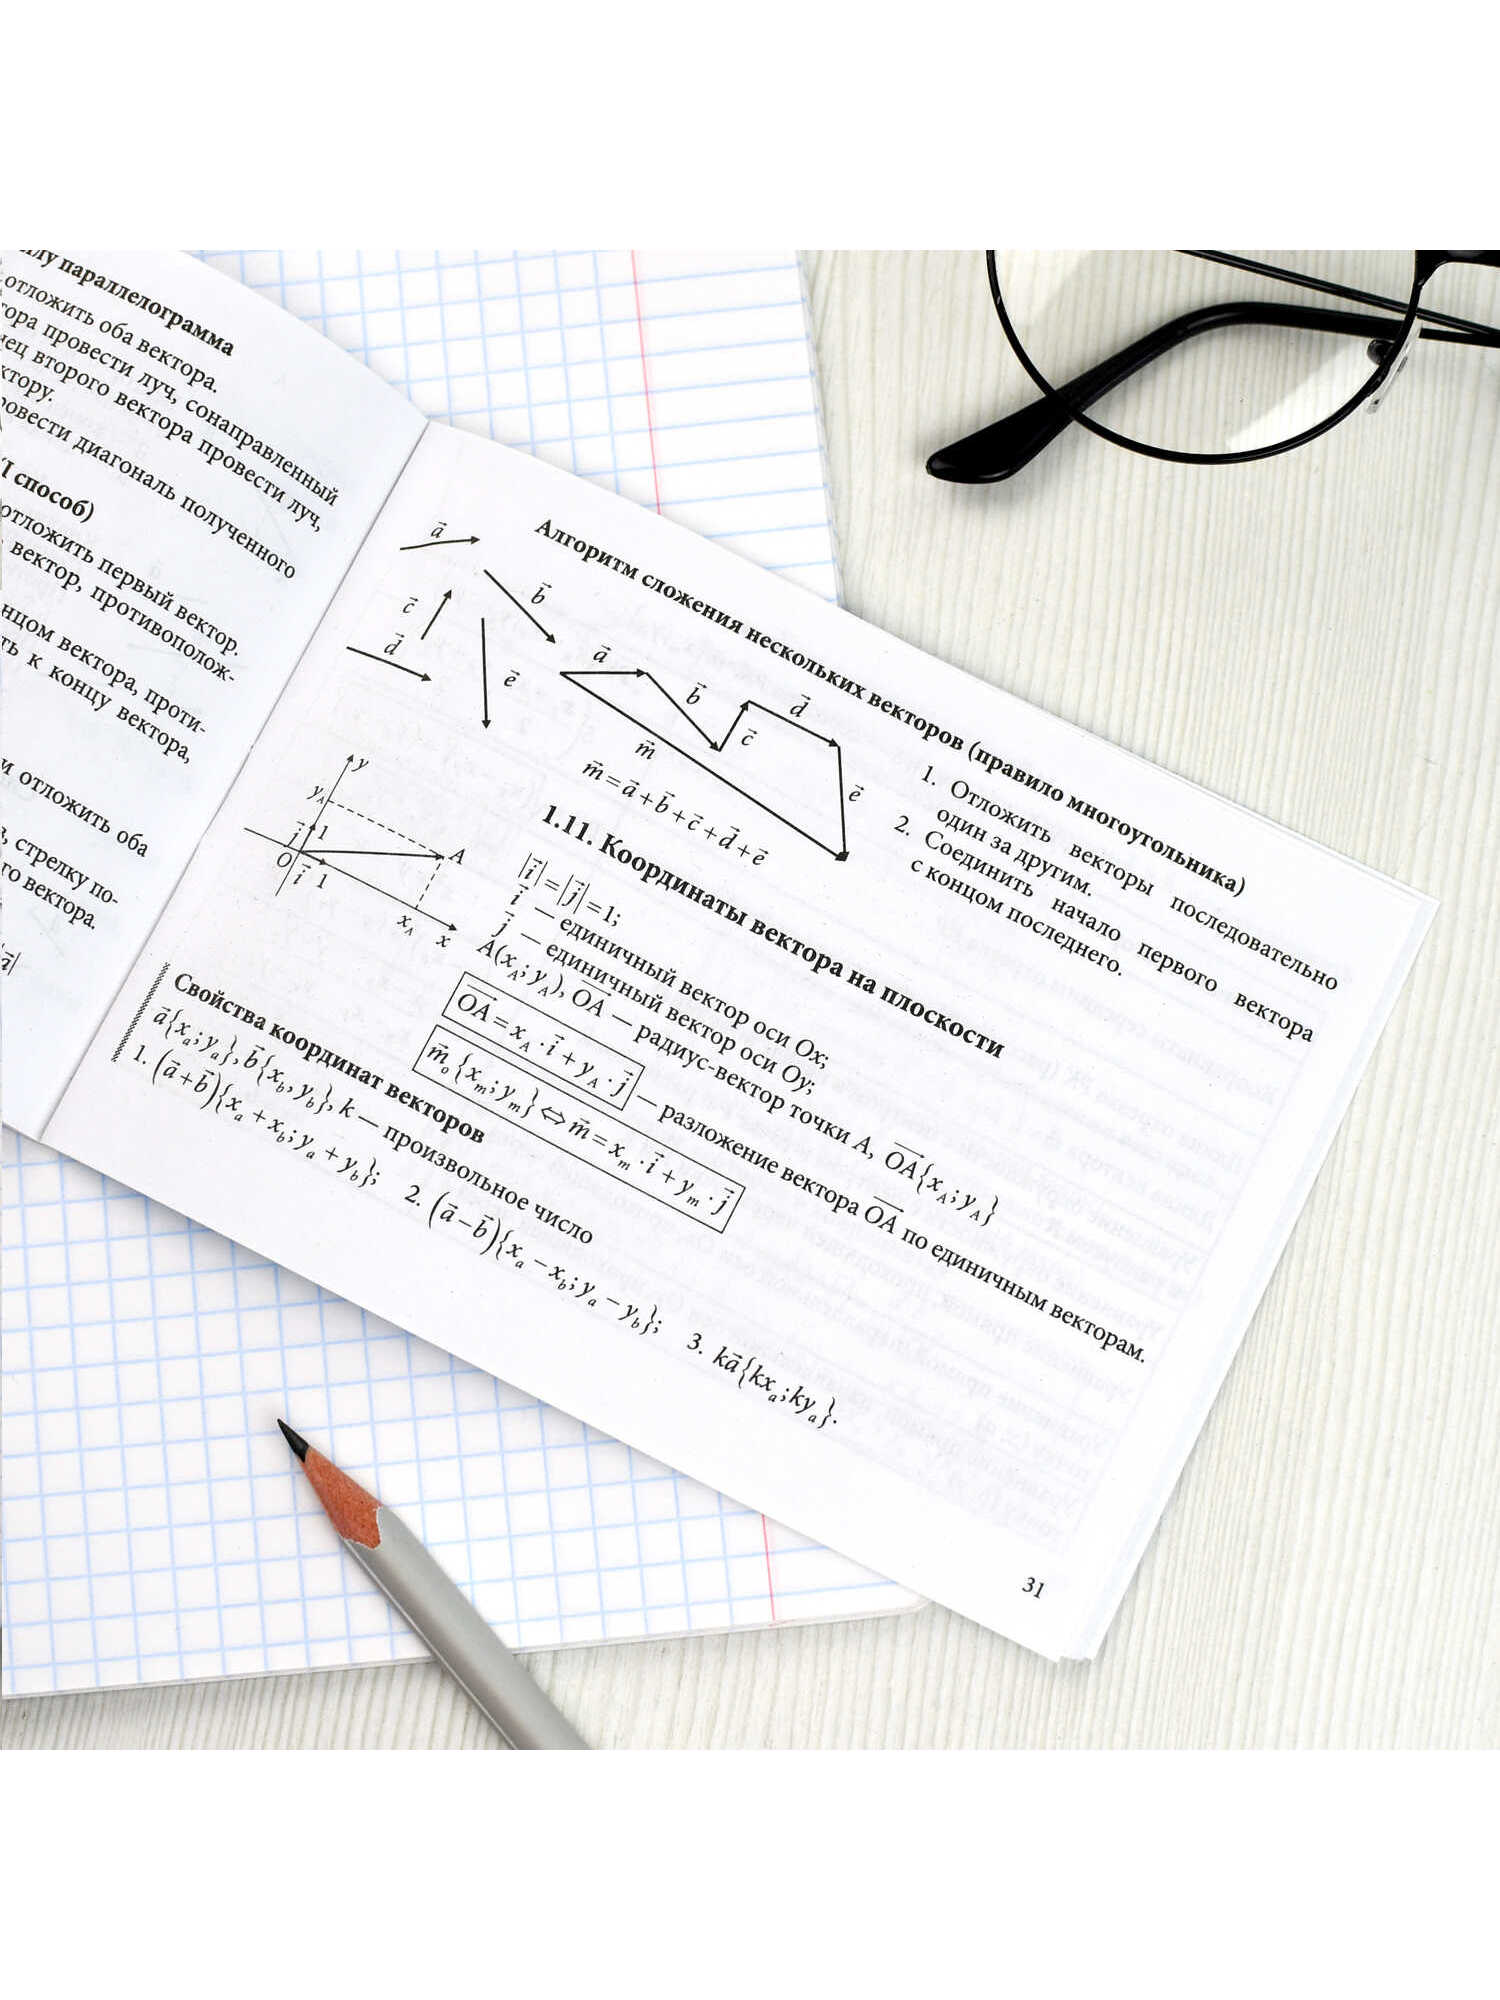 параллелограмма
отложить оба вектора.
провести луч, сонаправленный
второго вектора провести луч,
диагональ полученного
способ)
отложить первый вектор.
вектор, противополож-
вектора, проти-
к концу вектора,
и отложить оба
стрелку по-
вектора.
|a⃗|
Алгоритм сложения нескольких векторов (правило многоугольника)
a⃗
b⃗
c⃗
d⃗
e⃗
a⃗
b⃗
c⃗
d⃗
e⃗
m⃗
m⃗ = a⃗ + b⃗ + c⃗ + d⃗ + e⃗
1. Отложить векторы последовательно
один за другим.
2. Соединить начало первого вектора
с концом последнего.
1.11. Координаты вектора на плоскости
y
y_A
j⃗ 1
O
i⃗ 1
A
x_A
x
|i⃗| = |j⃗| = 1;
i⃗ — единичный вектор оси Ox;
j⃗ — единичный вектор оси Oy;
A(x_A; y_A), OA⃗ — радиус-вектор точки A, OA⃗{x_A; y_A}
OA⃗ = x_A · i⃗ + y_A · j⃗ — разложение вектора OA⃗ по единичным векторам.
m⃗_o{x_m; y_m} ⇔ m⃗ = x_m · i⃗ + y_m · j⃗
Свойства координат векторов
a⃗{x_a; y_a}, b⃗{x_b, y_b}, k — произвольное число
1. (a⃗ + b⃗){x_a + x_b; y_a + y_b}; 2. (a⃗ − b⃗){x_a − x_b; y_a − y_b}; 3. ka⃗{kx_a; ky_a}.
31